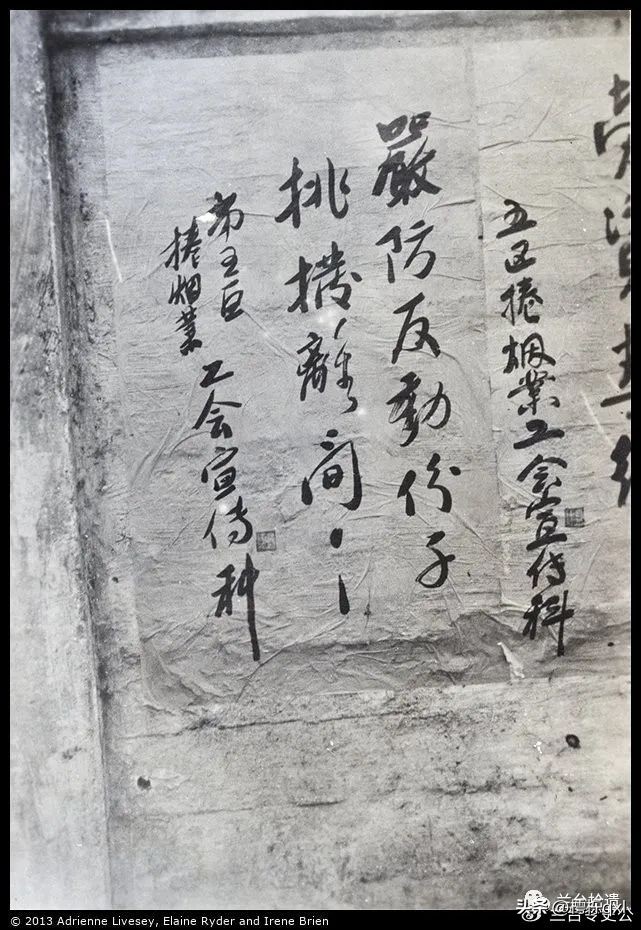 五区捲烟業工会宣传科
嚴防反動份子
挑撥離间!!
第五区
捲烟業
工会宣传科
© 2013 Adrienne Livesey, Elaine Ryder and Irene Brien
兰台拾遗